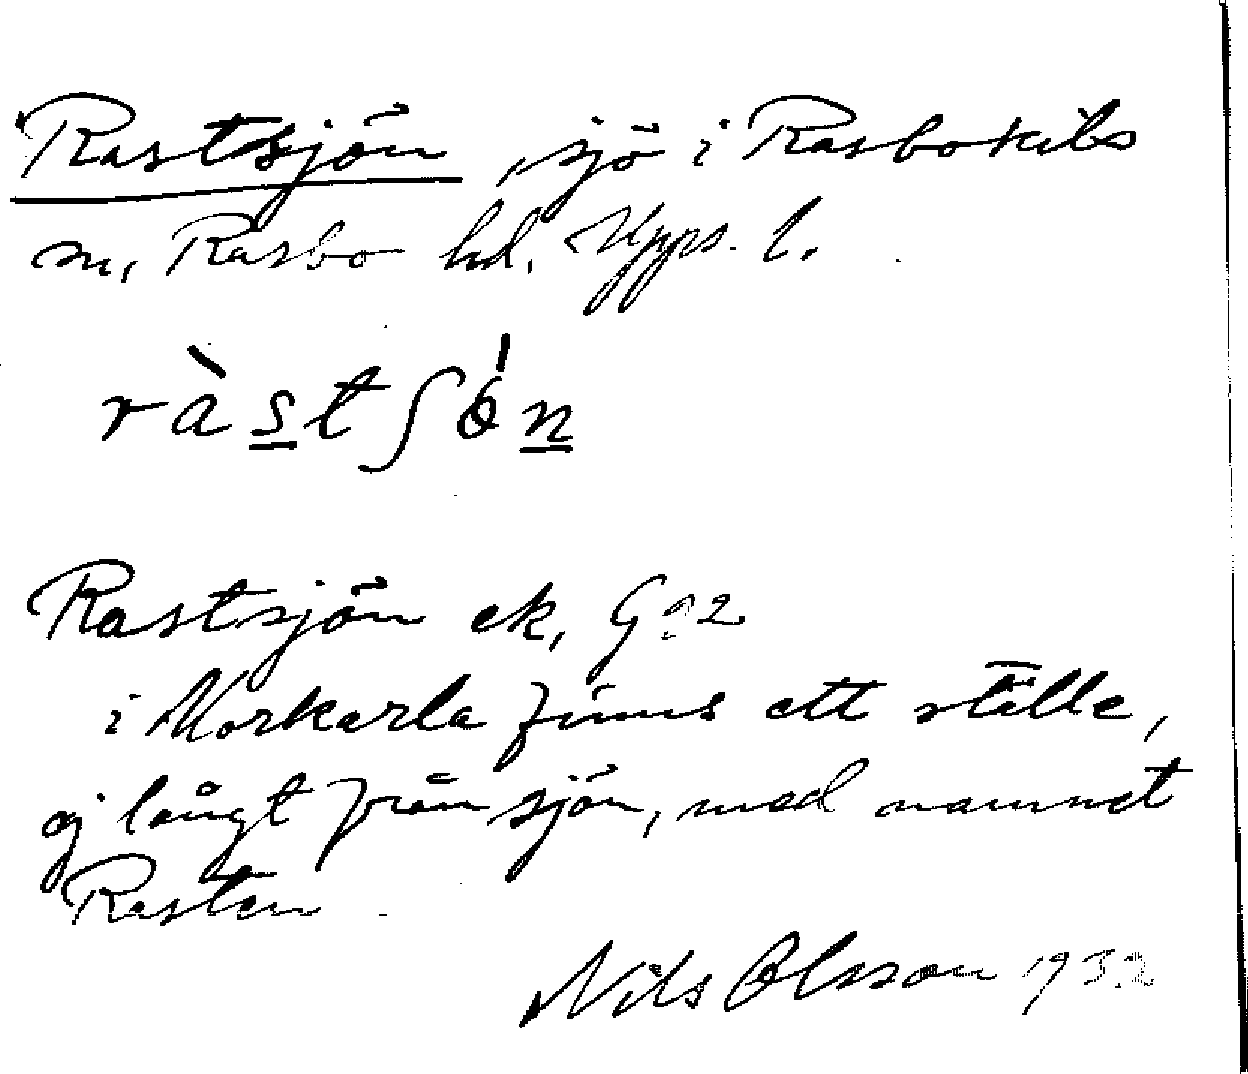 Rastsjön, sjö i Rasbokils
sn, Rasbo hd, Upps. l.
ràstʃö́n
Rastsjön ek,
i Morkarla finns ett ställe,
ej långt från sjön, med namnet
Rasten.
Nils Olsson 1932